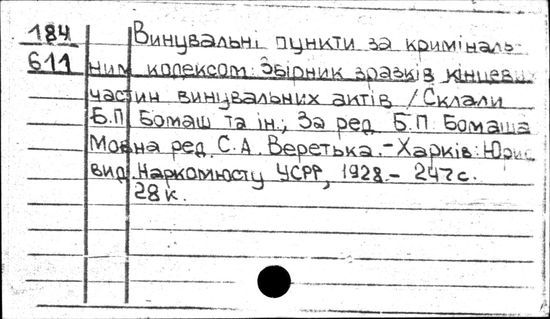 184 Винувальні пункти за криміналь-
611 ним кодексом: Збірник зразків кінцевих
частин винувальних актів /Склали
Б.П. Бомаш та ін.; За ред. Б.П. Бомаша
Мовна ред. С.А. Веретька.-Харків: Юрис
вид. Наркомюсту УСРР, 1928.- 247с.
28к.